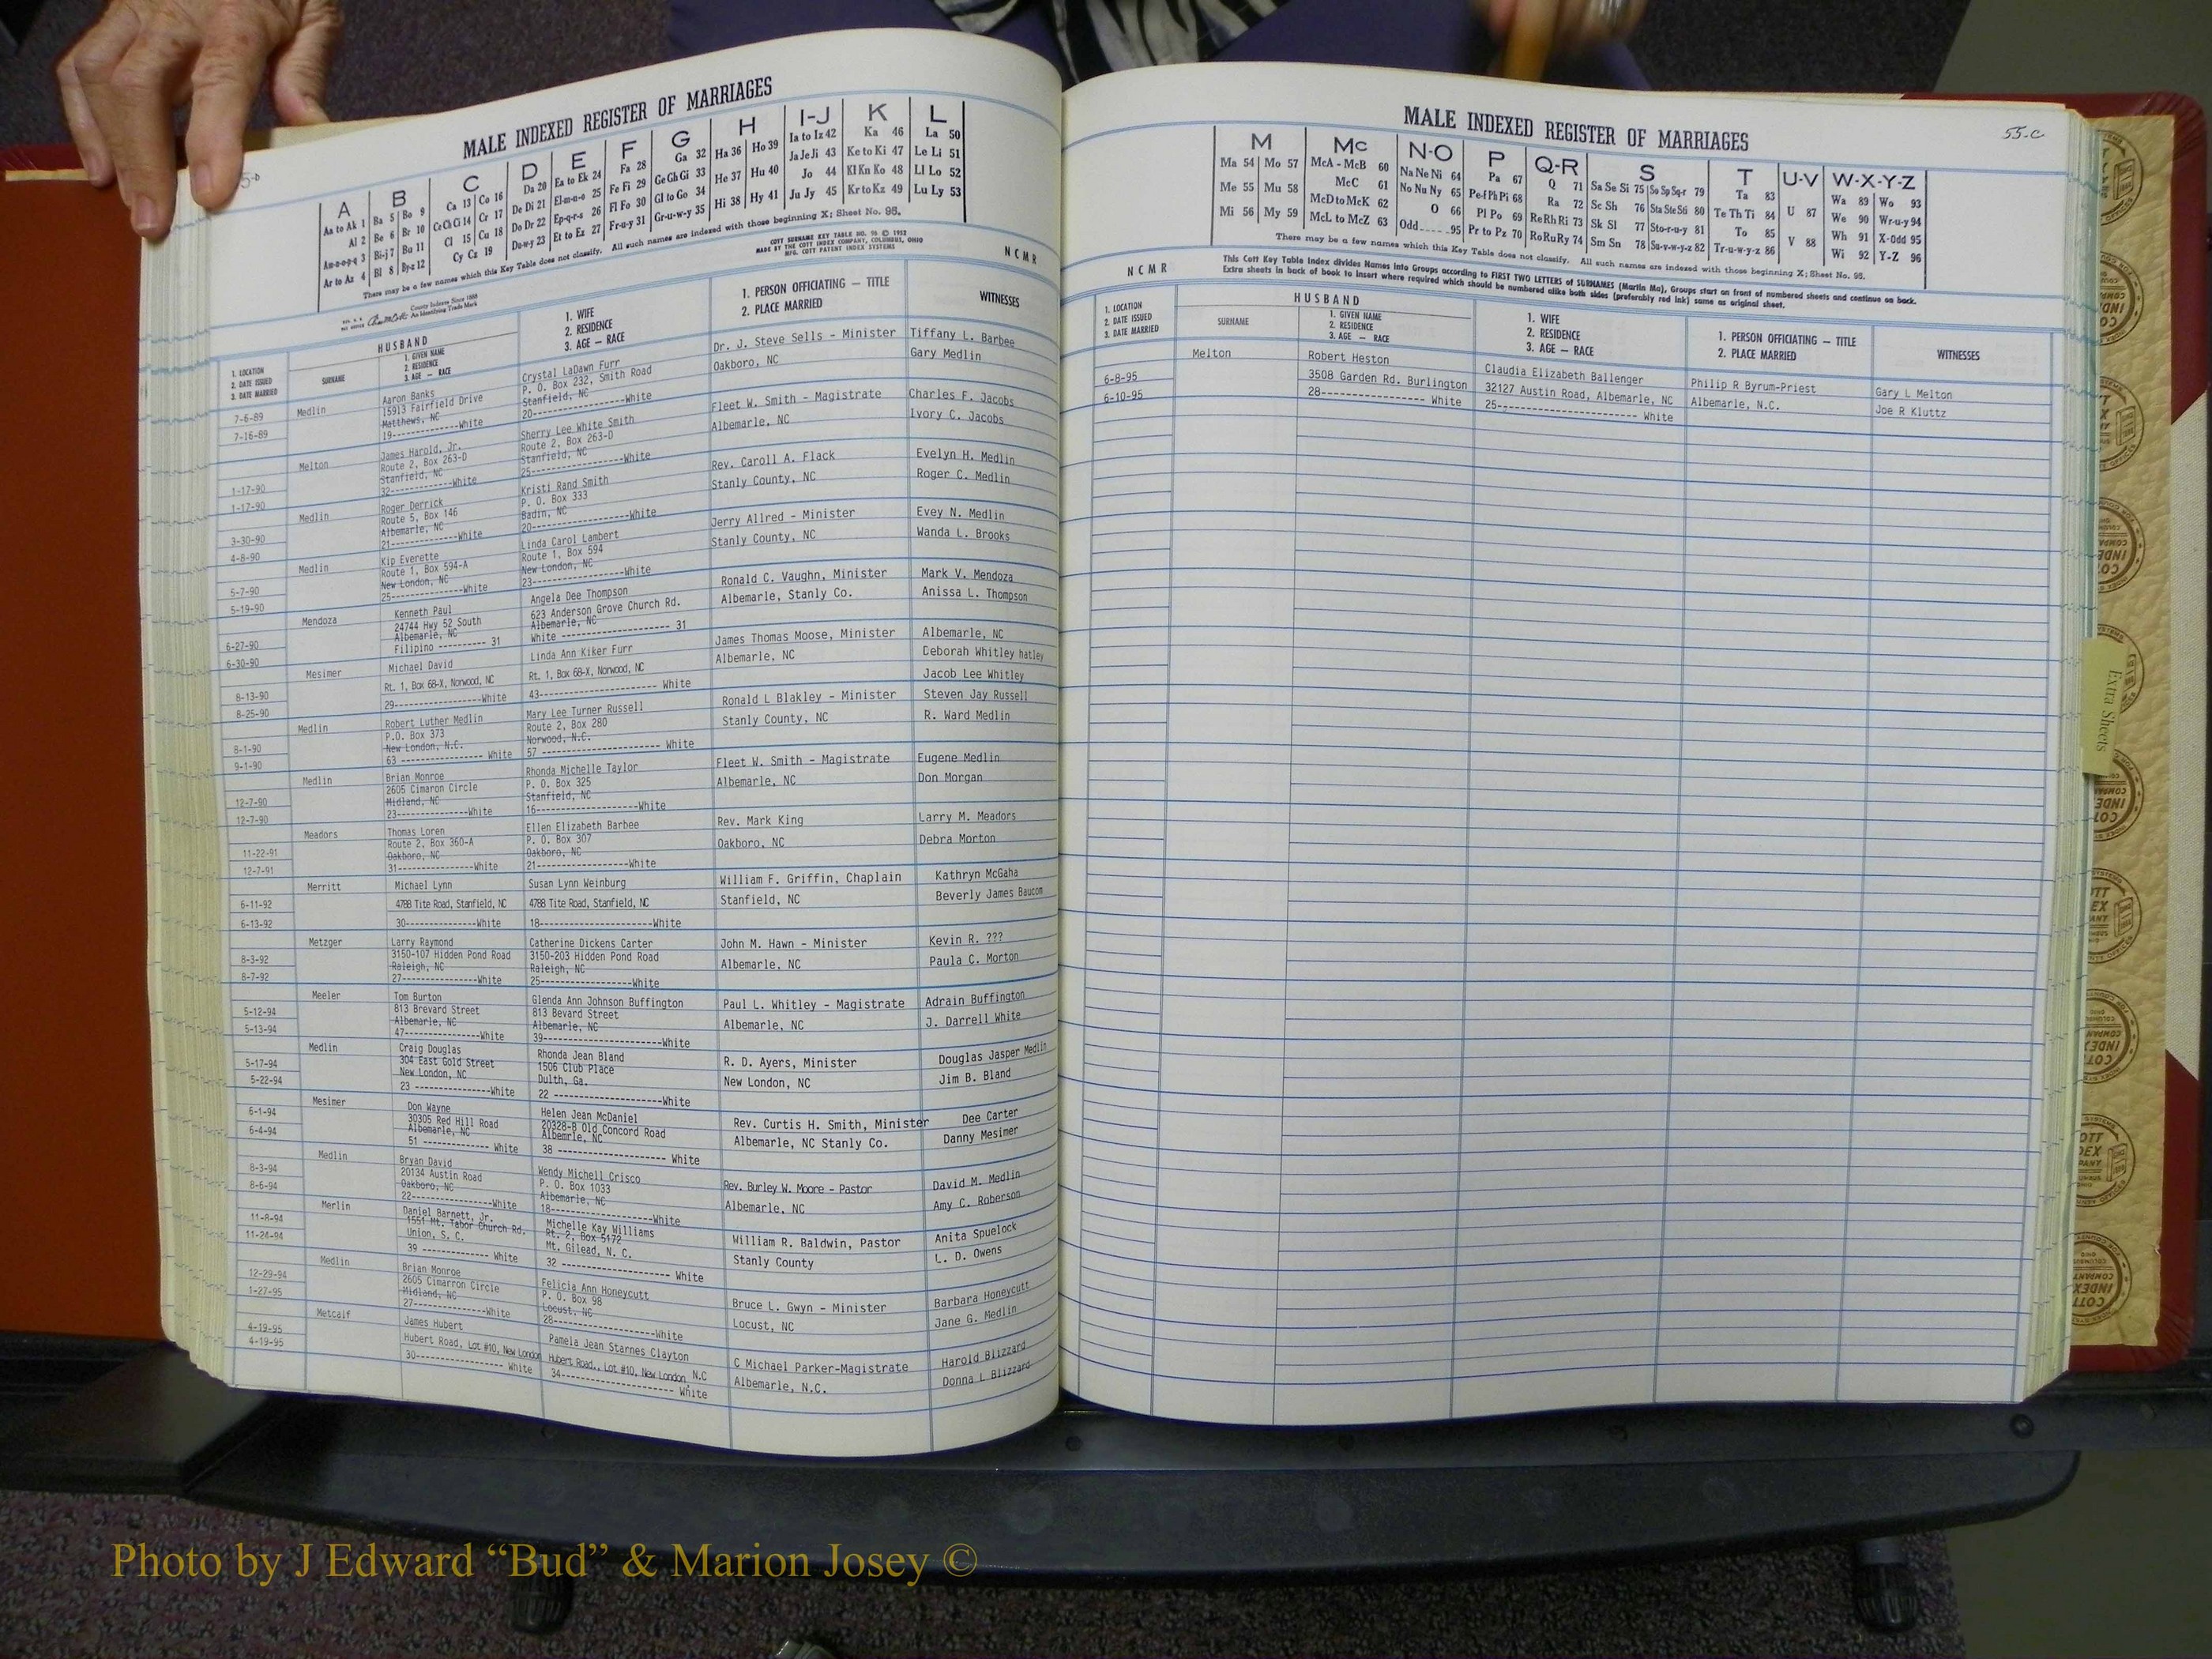 MALE INDEXED REGISTER OF MARRIAGES
A B C D E F G H I-J K L
Aa to Ak 1 Ba 5 Bo 9 Ca 13 Co 16 Da 20 Ea to Ek 24 Fa 28 Ga 32 Ha 36 Ho 39 Ia to Iz 42 Ka 46 La 50
Al 2 Be 6 Br 10 Ce Ch Ci 14 Cr 17 De Di 21 El-m-n-o 25 Fe Fi 29 Ge Gh Gi 33 He 37 Hu 40 Ja Je Ji 43 Ke to Ki 47 Le Li 51
Am-n-o-p-q 3 Bi-j 7 Bu 11 Cl 15 Cu 18 Do Dr 22 Ep-q-r-s 26 Fl Fo 30 Gl to Go 34 Hi 38 Hy 41 Jo 44 Kl Kn Ko 48 Ll Lo 52
Ar to Az 4 Bl 8 By-z 12 Cy Cz 19 Du-w-y 23 Et to Ez 27 Fr-u-y 31 Gr-u-w-y 35 Ju Jy 45 Kr to Kz 49 Lu Ly 53
There may be a few names which this Key Table does not classify. All such names are indexed with those beginning X; Sheet No. 96.
COTT SURNAME KEY TABLE NO. 96 © 1952
MADE BY THE COTT INDEX COMPANY, COLUMBUS, OHIO
MFG. COTT PATENT INDEX SYSTEMS
County Indexes Since 1888
An Identifying Trade Mark
N C M R
1. LOCATION
2. DATE ISSUED
3. DATE MARRIED
HUSBAND
SURNAME
1. GIVEN NAME
2. RESIDENCE
3. AGE — RACE
1. WIFE
2. RESIDENCE
3. AGE — RACE
1. PERSON OFFICIATING — TITLE
2. PLACE MARRIED
WITNESSES
7-6-89
7-16-89
Medlin
Aaron Banks
15913 Fairfield Drive
Matthews, NC
19-------------White
Crystal LaDawn Furr
P. O. Box 232, Smith Road
Stanfield, NC
20------------------White
Dr. J. Steve Sells - Minister
Oakboro, NC
Tiffany L. Barbee
Gary Medlin
1-17-90
1-17-90
Melton
James Harold, Jr.
Route 2, Box 263-D
Stanfield, NC
32-------------White
Sherry Lee White Smith
Route 2, Box 263-D
Stanfield, NC
25------------------White
Fleet W. Smith - Magistrate
Albemarle, NC
Charles F. Jacobs
Ivory C. Jacobs
3-30-90
4-8-90
Medlin
Roger Derrick
Route 5, Box 146
Albemarle, NC
21-------------White
Kristi Rand Smith
P. O. Box 333
Badin, NC
20-------------------White
Rev. Caroll A. Flack
Stanly County, NC
Evelyn H. Medlin
Roger C. Medlin
5-7-90
5-19-90
Medlin
Kip Everette
Route 1, Box 594-A
New London, NC
25--------------White
Linda Carol Lambert
Route 1, Box 594
New London, NC
23------------------White
Jerry Allred - Minister
Stanly County, NC
Evey N. Medlin
Wanda L. Brooks
6-27-90
6-30-90
Mendoza
Kenneth Paul
24744 Hwy 52 South
Albemarle, NC
Filipino --------- 31
Angela Dee Thompson
623 Anderson Grove Church Rd.
Albemarle, NC
White --------------------- 31
Ronald C. Vaughn, Minister
Albemarle, Stanly Co.
Mark V. Mendoza
Anissa L. Thompson
8-13-90
8-25-90
Mesimer
Michael David
Rt. 1, Box 68-X, Norwood, NC
29-----------------White
Linda Ann Kiker Furr
Rt. 1, Box 68-X, Norwood, NC
43----------------------- White
James Thomas Moose, Minister
Albemarle, NC
Albemarle, NC
Deborah Whitley hatley
Jacob Lee Whitley
8-1-90
9-1-90
Medlin
Robert Luther Medlin
P.O. Box 373
New London, N.C.
63 ---------------- White
Mary Lee Turner Russell
Route 2, Box 280
Norwood, N.C.
57 ----------------------- White
Ronald L Blakley - Minister
Stanly County, NC
Steven Jay Russell
R. Ward Medlin
12-7-90
12-7-90
Medlin
Brian Monroe
2605 Cimaron Circle
Midland, NC
23--------------White
Rhonda Michelle Taylor
P. O. Box 325
Stanfield, NC
16--------------------White
Fleet W. Smith - Magistrate
Albemarle, NC
Eugene Medlin
Don Morgan
11-22-91
12-7-91
Meadors
Thomas Loren
Route 2, Box 360-A
Oakboro, NC
31--------------White
Ellen Elizabeth Barbee
P. O. Box 307
Oakboro, NC
21------------------White
Rev. Mark King
Oakboro, NC
Larry M. Meadors
Debra Morton
6-11-92
6-13-92
Merritt
Michael Lynn
4788 Tite Road, Stanfield, NC
30--------------White
Susan Lynn Weinburg
4788 Tite Road, Stanfield, NC
18----------------------White
William F. Griffin, Chaplain
Stanfield, NC
Kathryn McGaha
Beverly James Baucom
8-3-92
8-7-92
Metzger
Larry Raymond
3150-107 Hidden Pond Road
Raleigh, NC
27---------------White
Catherine Dickens Carter
3150-203 Hidden Pond Road
Raleigh, NC
25------------------White
John M. Hawn - Minister
Albemarle, NC
Kevin R. ???
Paula C. Morton
5-12-94
5-13-94
Meeler
Tom Burton
813 Brevard Street
Albemarle, NC
47---------------White
Glenda Ann Johnson Buffington
813 Bevard Street
Albemarle, NC
39----------------------White
Paul L. Whitley - Magistrate
Albemarle, NC
Adrain Buffington
J. Darrell White
5-17-94
5-22-94
Medlin
Craig Douglas
304 East Gold Street
New London, NC
23 ---------------White
Rhonda Jean Bland
1506 Club Place
Dulth, Ga.
22 ---------------------White
R. D. Ayers, Minister
New London, NC
Douglas Jasper Medlin
Jim B. Bland
6-1-94
6-4-94
Mesimer
Don Wayne
30305 Red Hill Road
Albemarle, NC
51 ------------- White
Helen Jean McDaniel
20328-B Old Concord Road
Albemrle, NC
38 --------------------- White
Rev. Curtis H. Smith, Minister
Albemarle, NC Stanly Co.
Dee Carter
Danny Mesimer
8-3-94
8-6-94
Medlin
Bryan David
20134 Austin Road
Oakboro, NC
22---------------White
Wendy Michell Crisco
P. O. Box 1033
Albemarle, NC
18-------------------White
Rev. Burley W. Moore - Pastor
Albemarle, NC
David M. Medlin
Amy C. Roberson
11-8-94
11-24-94
Merlin
Daniel Barnett, Jr.
1551 Mt. Tabor Church Rd.
Union, S. C.
39 ------------- White
Michelle Kay Williams
Rt. 2, Box 5172
Mt. Gilead, N. C.
32 --------------------- White
William R. Baldwin, Pastor
Stanly County
Anita Spuelock
L. D. Owens
12-29-94
1-27-95
Medlin
Brian Monroe
2605 Cimarron Circle
Midland, NC
27--------------White
Felicia Ann Honeycutt
P. O. Box 98
Locust, NC
28-------------------White
Bruce L. Gwyn - Minister
Locust, NC
Barbara Honeycutt
Jane G. Medlin
4-19-95
4-19-95
Metcalf
James Hubert
Hubert Road, Lot #10, New London
30---------------- White
Pamela Jean Starnes Clayton
Hubert Road., Lot #10, New London, N.C
34---------------------- White
C Michael Parker-Magistrate
Albemarle, N.C.
Harold Blizzard
Donna L Blizzard
MALE INDEXED REGISTER OF MARRIAGES
55-C
M Mc N-O P Q-R S T U-V W-X-Y-Z
Ma 54 Mo 57 McA - McB 60 Na Ne Ni 64 Pa 67 Q 71 Sa Se Si 75 So Sp Sq-r 79 Ta 83 U 87 Wa 89 Wo 93
Me 55 Mu 58 McC 61 No Nu Ny 65 Pe-f Ph Pi 68 Ra 72 Sc Sh 76 Sta Ste Sti 80 Te Th Ti 84 V 88 We 90 Wr-u-y 94
Mi 56 My 59 McD to McK 62 O 66 Pl Po 69 Re Rh Ri 73 Sk Sl 77 Sto-r-u-y 81 To 85 Wh 91 X-Odd 95
McL to McZ 63 Odd.....95 Pr to Pz 70 Ro Ru Ry 74 Sm Sn 78 Su-v-w-y-z 82 Tr-u-w-y-z 86 Wi 92 Y-Z 96
There may be a few names which this Key Table does not classify. All such names are indexed with those beginning X; Sheet No. 96.
This Cott Key Table Index divides Names into Groups according to FIRST TWO LETTERS of SURNAMES (Martin Ma), Groups start on front of numbered sheets and continue on back.
Extra sheets in back of book to insert where required which should be numbered alike both sides (preferably red ink) same as original sheet.
N C M R
1. LOCATION
2. DATE ISSUED
3. DATE MARRIED
HUSBAND
SURNAME
1. GIVEN NAME
2. RESIDENCE
3. AGE — RACE
1. WIFE
2. RESIDENCE
3. AGE — RACE
1. PERSON OFFICIATING — TITLE
2. PLACE MARRIED
WITNESSES
6-8-95
6-10-95
Melton
Robert Heston
3508 Garden Rd. Burlington
28---------------- White
Claudia Elizabeth Ballenger
32127 Austin Road, Albemarle, NC
25---------------------- White
Philip R Byrum-Priest
Albemarle, N.C.
Gary L Melton
Joe R Kluttz
Extra Sheets
Photo by J Edward “Bud” & Marion Josey ©